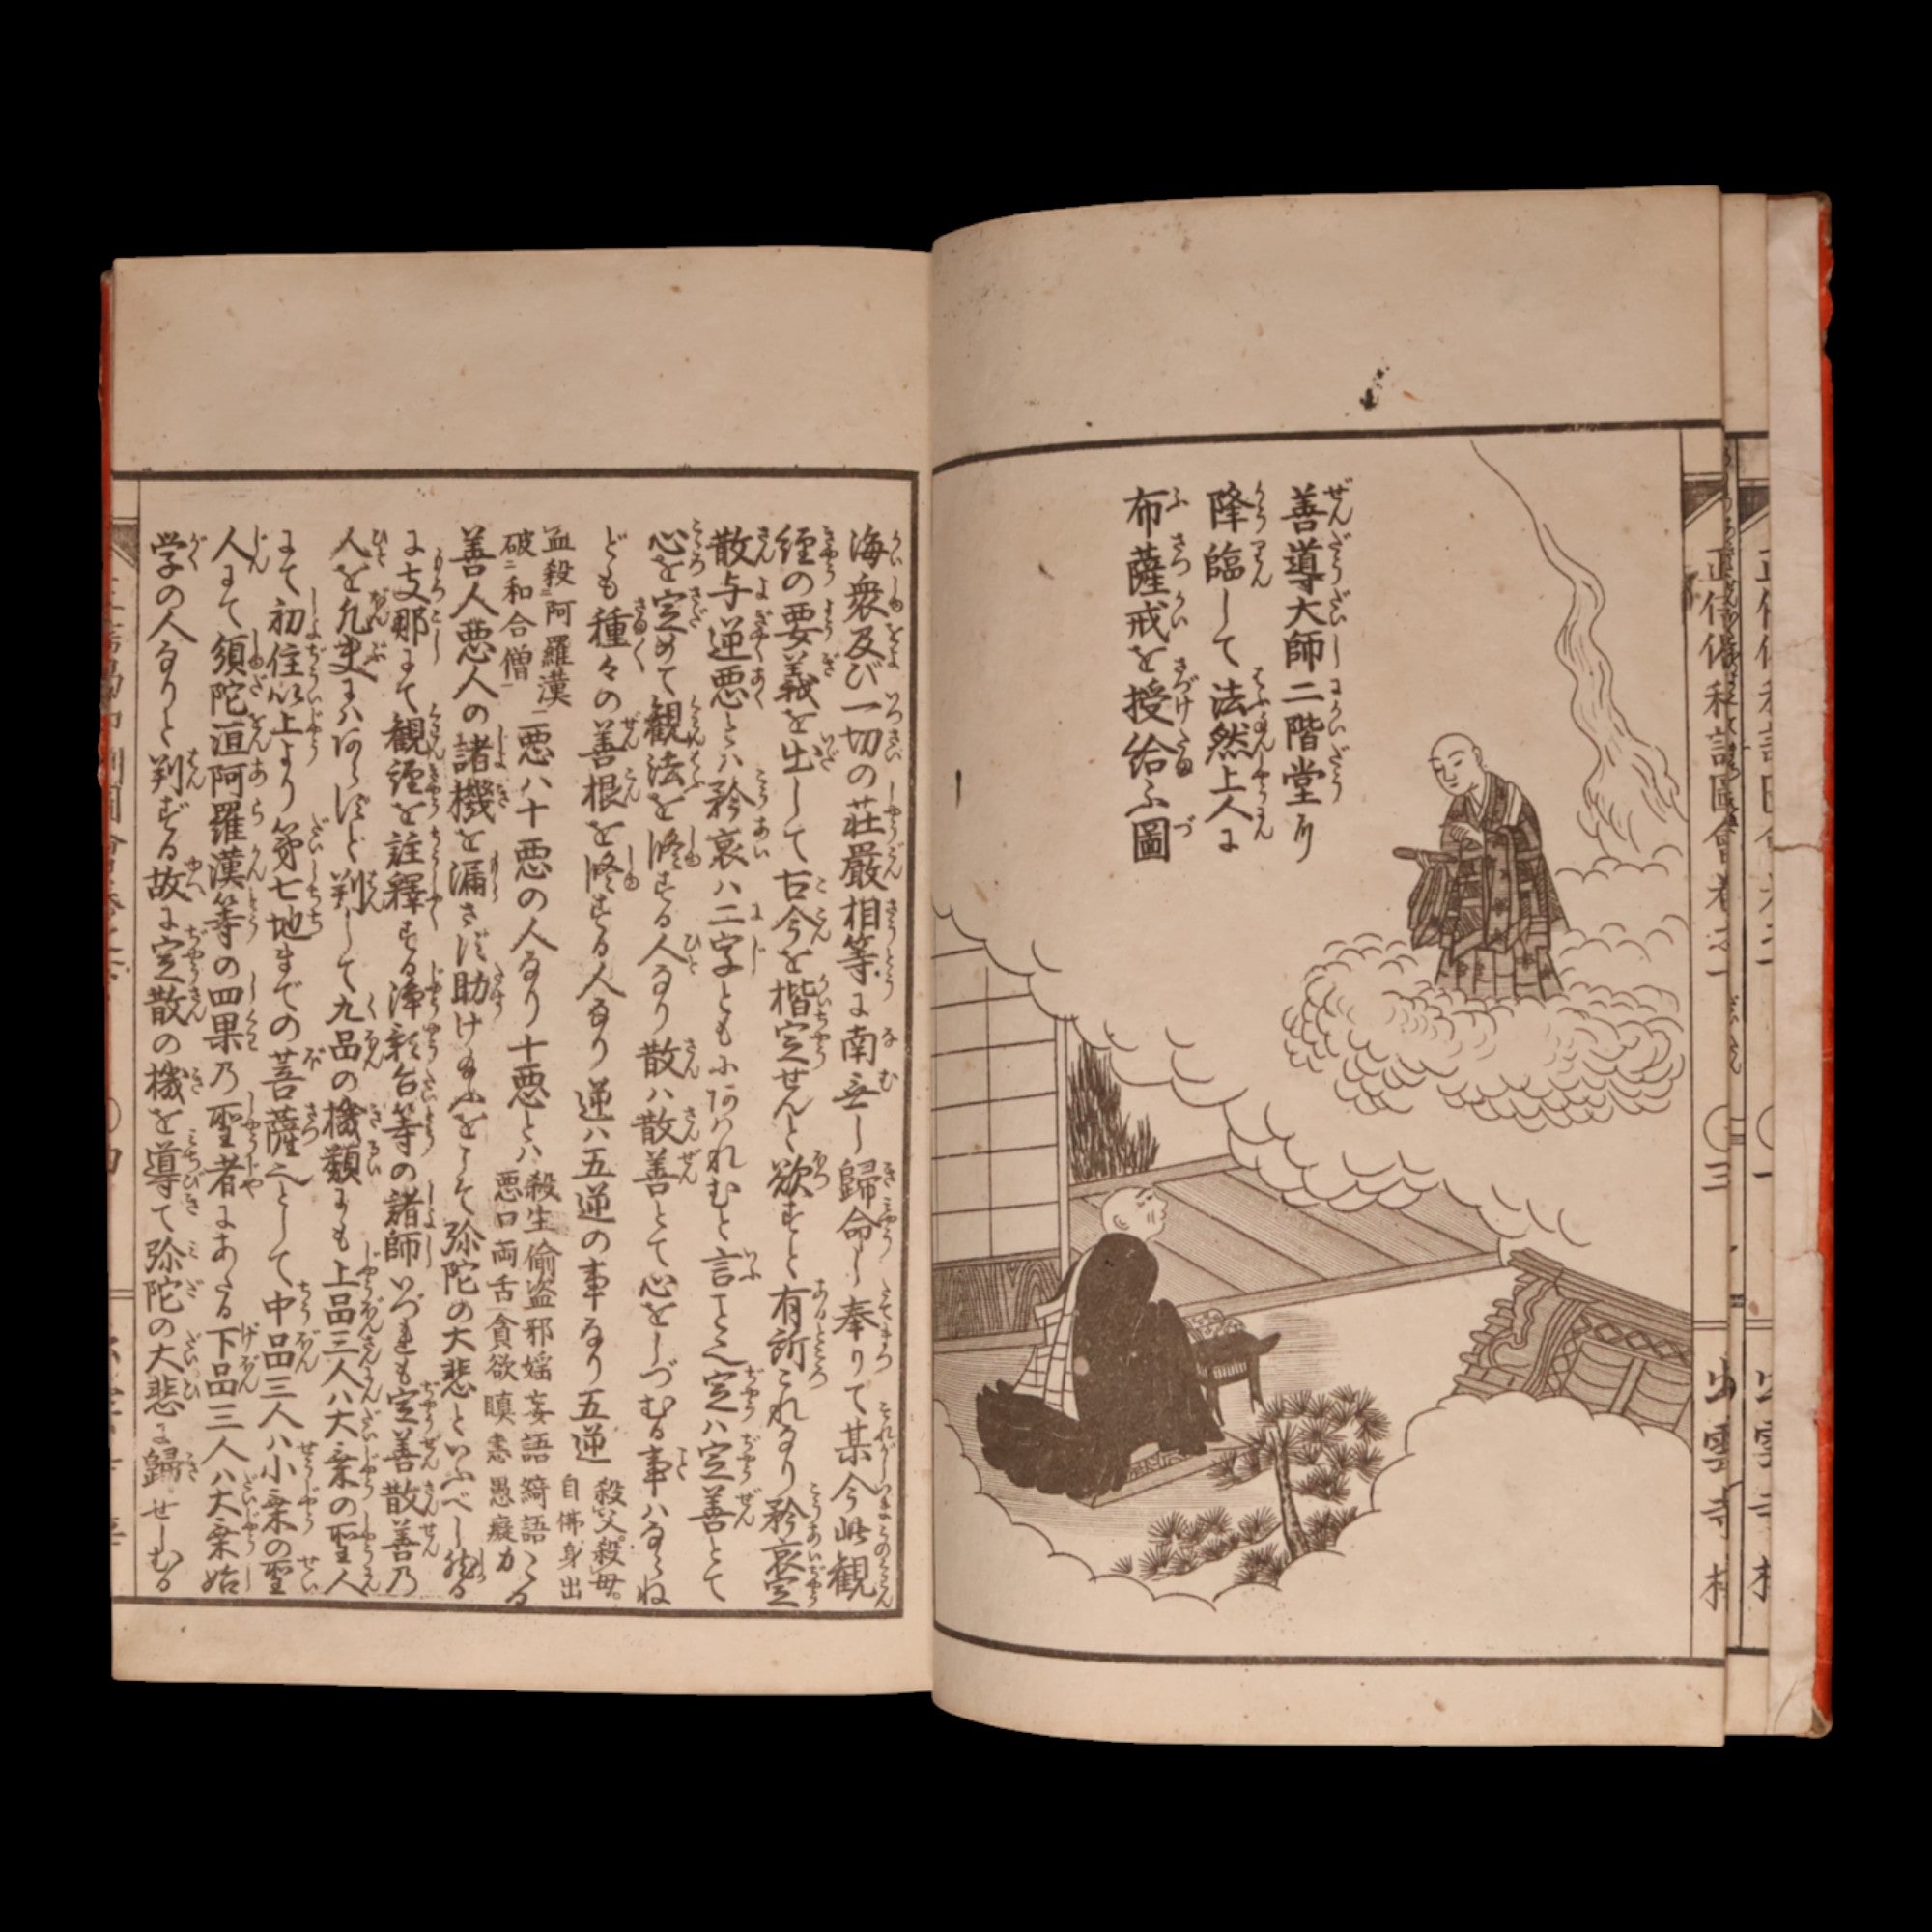 善導大師二階堂に
降臨して法然上人に
布薩戒を授給ふ圖
海衆及び一切の荘厳相等に南無し歸命し奉りて某今此観
経の要義を出して古今を楷定せんと欲すと有所これなり矜哀定
散与逆悪とハ矜哀ハ二字ともにあハれむと言こと定ハ定善とて
心を定めて観法を修する人なり散ハ散善とて心をしづむる事ハならね
ども種々の善根を修する人なり逆ハ五逆の事なり五逆 殺父。殺母。
自佛身出
血殺阿羅漢
破和合僧 悪ハ十悪の人なり十悪とハ 殺生偸盗邪婬妄語綺語
悪口両舌貪欲瞋恚愚癡
善人悪人の諸機を漏さず助け
こそ弥陀の大悲といふべし然る
に支那にて観経を註釋する浄影
等の諸師いづれも定善散善乃
人を凡夫にハあらずと判して九品の機類にも上品三人ハ大乗の聖人
にて初住以上より第七地までの菩薩として中品三人ハ小乗の聖
人にて須陀洹阿羅漢等の四果乃聖者にあたる下品三人ハ大乗始
学の人なりと判ずる故に定散の機を導て弥陀の大悲に歸せしむる